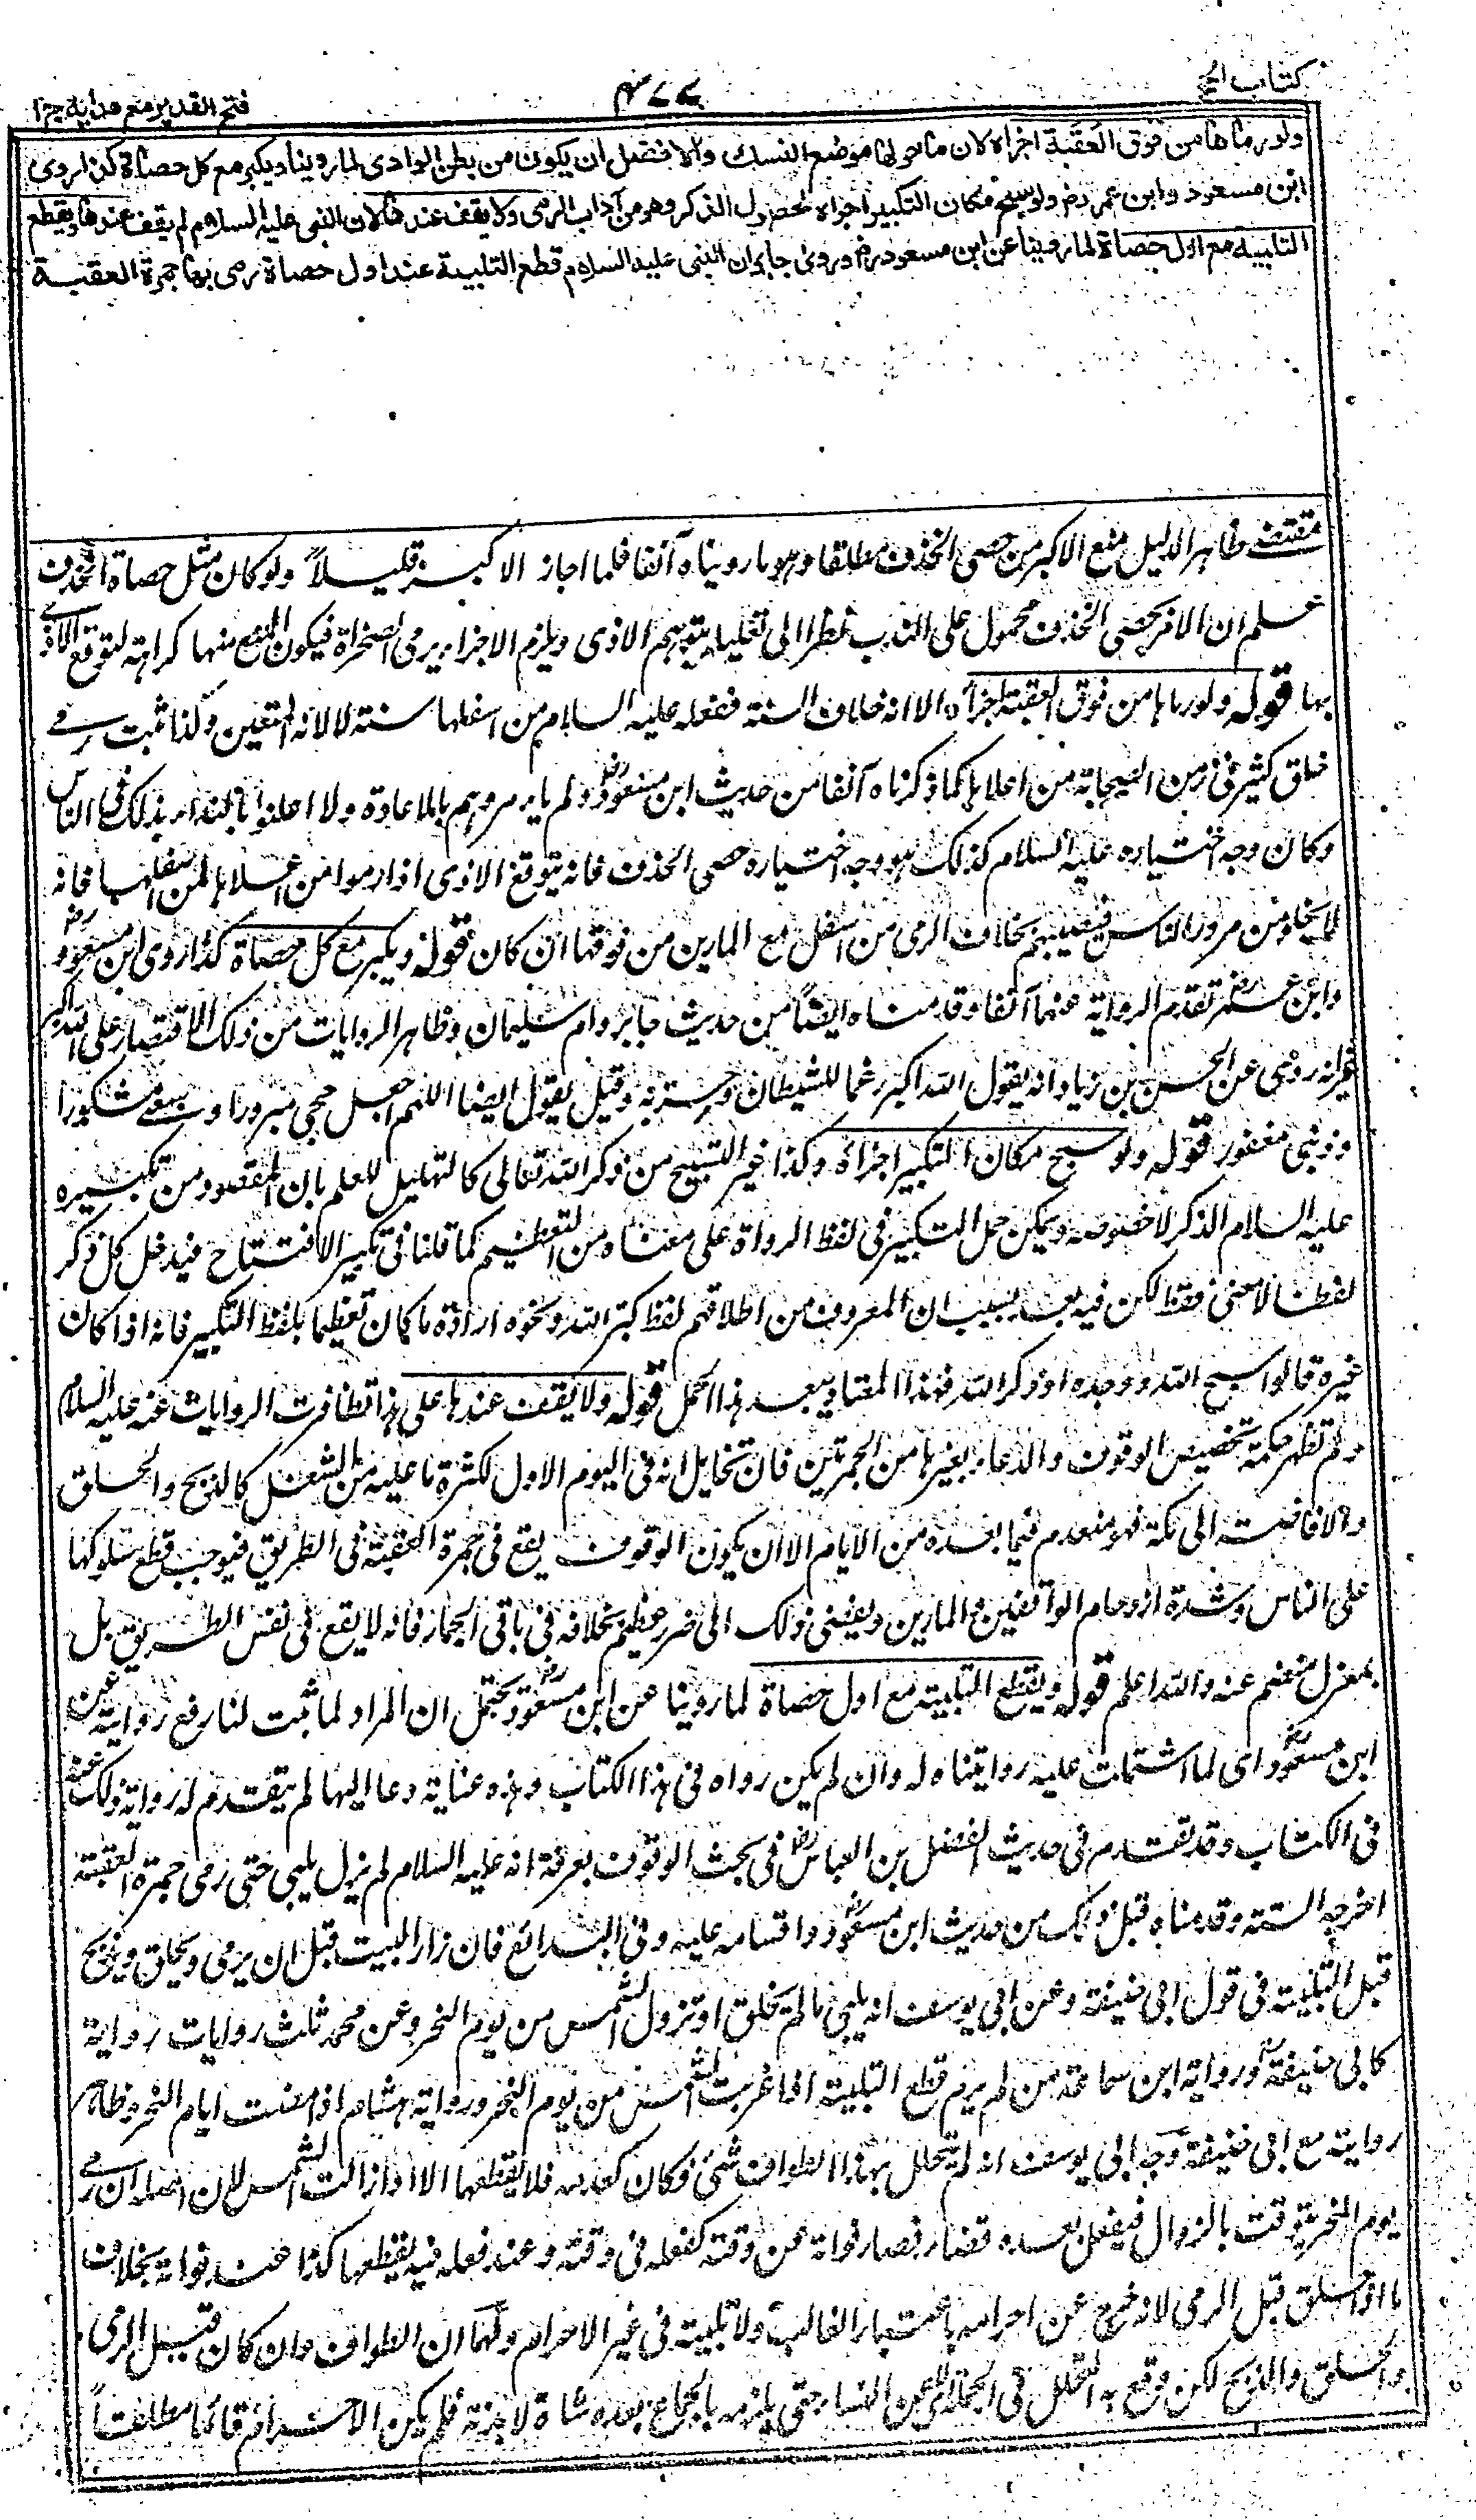 كتاب الحج
٣٧٧
فتح القدير مع هداية ج ١
ولو رماها من فوق العقبة اجزاه لان ما حولها موضع النسك والافضل ان يكون من بطن الوادي لما روينا ويكبر مع كل حصاة كذا روى
ابن مسعود وابن عمر رض ولو سبح مكان التكبير اجزاه لحصول الذكر وهو من آداب الرمى ولا يقف عندها لان النبى عليه السلام لم يقف عندها ويقطع
التلبية مع اول حصاة لما روينا عن ابن مسعود رض وروى جابر ان النبى عليه السلام قطع التلبية عند اول حصاة رمى بها جمرة العقبة
مقتضى ظاهر الدليل منع الاكبر من حصى الخذف مطلقا وهو ما رويناه آنفا فلما اجاز الاكبر قليلاً ولو كان مثل حصاة الخذف
علم ان الامر بحصى الخذف محمول على الندب نظرا الى تعليله بتوهم الاذى ويلزم الاجزاء برمى الصخرات فيكون المنع منها كراهة لتوقع الاذى
بها قوله ولو رماها من فوق العقبة اجزأه الا انه خلاف السنة ففعله عليه السلام من اسفلها سنة لا لانه المتعين ولذا ثبت رمى
خلق كثير فى زمن الصحابة من اعلاها كما ذكرناه آنفا من حديث ابن مسعود رض ولم يامروهم بالاعادة ولا اعلنوا بالنداء بذلك فى الناس
وكان وجه اختياره عليه السلام كذلك هو وجه اختياره حصى الخذف فانه يتوقع الاذى اذا رموا من اعلاها لمن اسفلها فانه
لا يخلو من مرور الناس فيصيبهم بخلاف الرمى من اسفل مع المارين من فوقها ان كان قوله ويكبر مع كل حصاة كذا روى ابن مسعود رض
وابن عمر رض تقدم الرواية عنهما آنفا وقدمناه ايضاً من حديث جابر وام سليمان وظاهر الروايات من ذلك الاقتصار على الله اكبر
غير انه روى عن الحسن بن زياد انه يقول الله اكبر رغما للشيطان وحزبه وقيل يقول ايضا اللهم اجعل حجى مبرورا وسعيى مشكورا
وذنبى مغفورا قوله ولو سبح مكان التكبير اجزأه وكذا غير التسبيح من ذكر الله تعالى كالتهليل للعلم بان المقصود من تكبيره
عليه السلام الذكر لا خصوصه ويمكن حمل التكبير فى لفظ الرواة على معناه من التعظيم كما قلنا فى تكبير الافتتاح فيدخل كل ذكر
لفظا لا معنى فقط لكن فيه بعد بسبب ان المعروف من اطلاقهم لفظ كبر الله ونحوه ارادة ما كان تعظيما بلفظ التكبير فانه اذا كان
غيره قالوا سبح الله ووحده او ذكر الله فهذا المعتاد يبعد هذا الحمل قوله ولا يقف عندها على هذا تظافرت الروايات عنه عليه السلام
ولم تظهر حكمة تخصيص الوقوف والدعاء بغيرها من الجمرتين فان تخايل انه فى اليوم الاول لكثرة ما عليه من الشغل كالذبح والحلق
والافاضة الى مكة فهو منعدم فيما بعده من الايام الا ان يكون الوقوف يقع فى جمرة العقبة فى الطريق فيوجب قطع سلوكها
على الناس وشدة ازدحام الواقفين مع المارين ويفضى ذلك الى ضرر عظيم بخلافه فى باقى الجمار فانه لا يقع فى نفس الطريق بل
بمعزل منعضم عنه والله اعلم قوله ويقطع التلبية مع اول حصاة لما روينا عن ابن مسعود رض يحتمل ان المراد لما ثبت لنا رفع روايته عن
ابن مسعود رض اى لما اشتملت عليه روايتنا له وان لم يكن رواه فى هذا الكتاب وهذه عناية دعا اليها لم يتقدم له رواية ذلك عنه
فى الكتاب وقد تقدم فى حديث الفضل بن العباس رض فى بحث الوقوف بعرفة انه عليه السلام لم يزل يلبى حتى رمى جمرة العقبة
اخرجه الستة وقدمناه قبل ذلك من حديث ابن مسعود رض واقسامه عليه وفى البدائع فان زار البيت قبل ان يرمى ويحلق ويذبح
قبل التلبية فى قول ابى حنيفة وعن ابى يوسف انه يلبى ما لم يحلق او تزول الشمس من يوم النحر وعن محمد ثلث روايات رواية
كابى حنيفة ورواية ابن سماعة من لم يرم قطع التلبية اذا غربت الشمس من يوم النحر ورواية هشام اذا مضت ايام النحر وظاهر
روايته مع ابى حنيفة وجه ابى يوسف انه لم يتحلل بهذا الطواف شئ فكان كعدمه فلا يقطعها الا اذا زالت الشمس لان اصله ان رمى
يوم النحر يتوقت بالزوال فيفعل بعده قضاء فصار فواته عن وقته كفعله فى وقته وعند فعله فيه يقطعها كذا عند فواته بخلاف
ما اذا حلق قبل الرمى لانه خرج عن احرامه باعتبار الغالب ولا تلبية فى غير الاحرام ولهما ان الطواف وان كان قبل الرمى
والحلق والذبح لكن وقع به التحلل فى الجملة عن النساء حتى يلزمه بالجماع بعده شاة لا بدنة فلم يكن الاحرام قائما مطلقاً